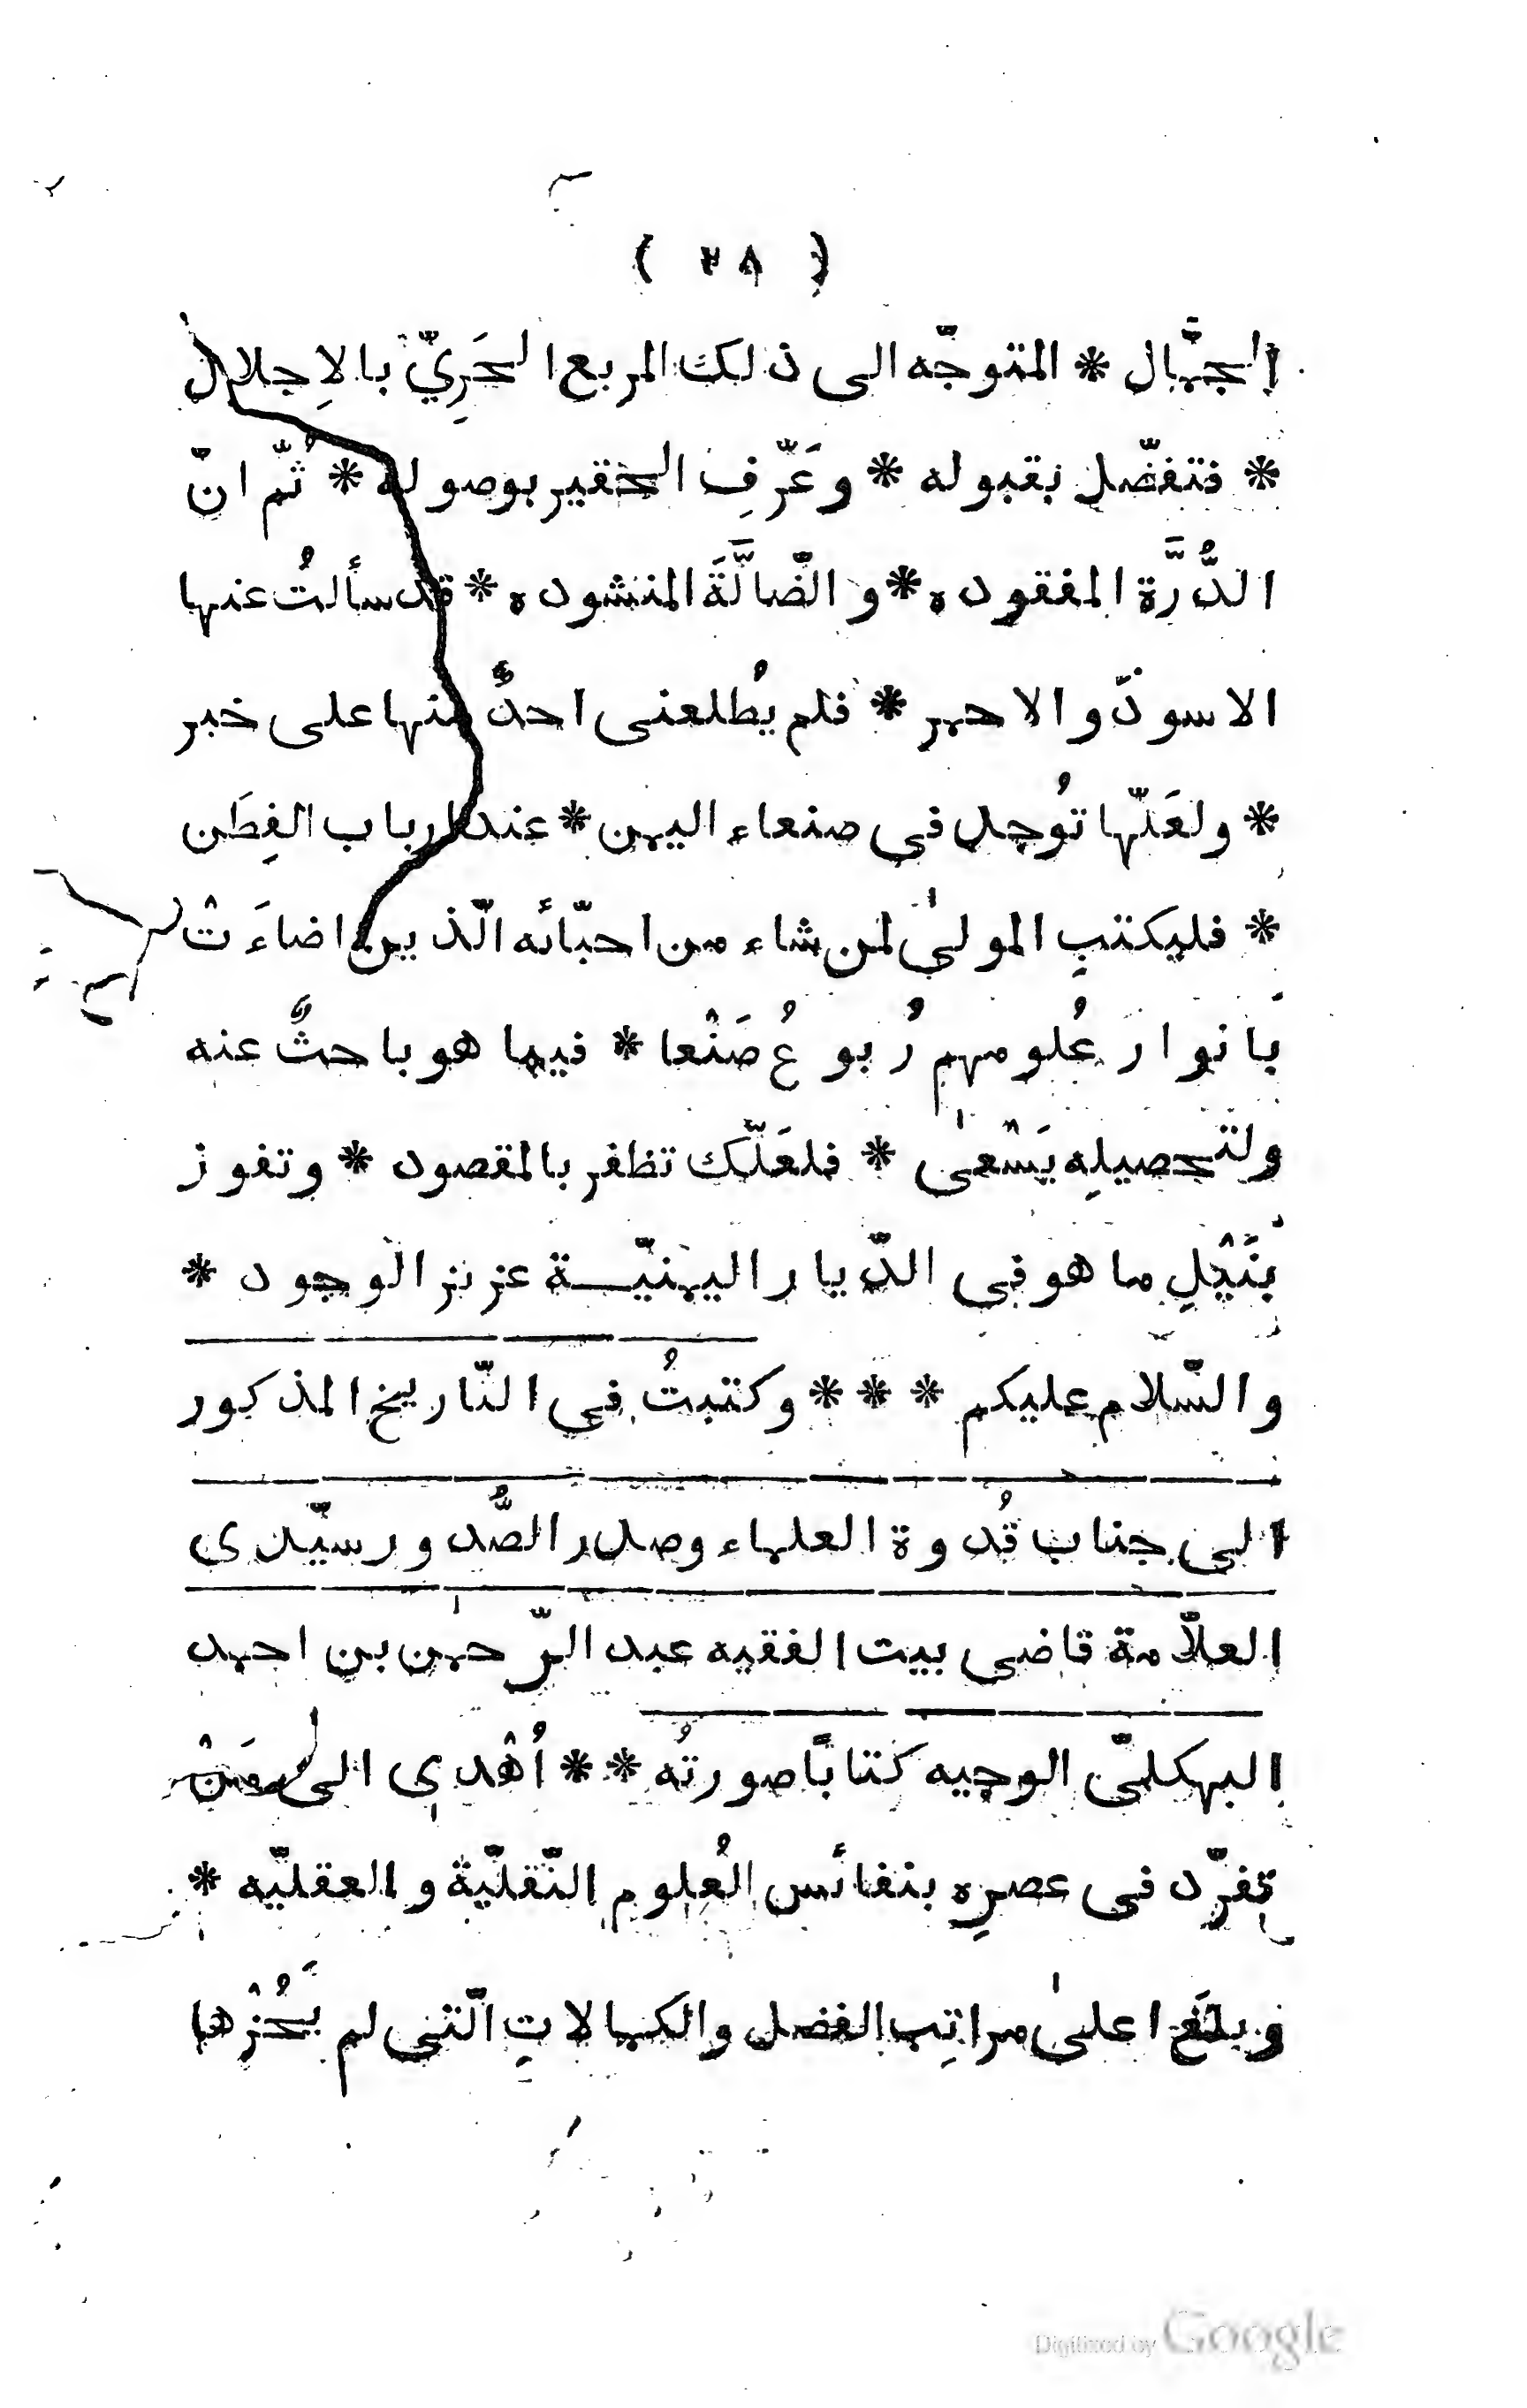 ( ٢٨ )
الجمّال * المتوجّه الى ذلك المربع الحَرِيّ بالاِجلال
* فتفضّل بقبوله * وعَرّفِ الحقير بوصوله * ثُمّ انّ
الدُّرَّة المفقوده * والضّالَّةَ المنشوده * قد سألتُ عنها
الاسود والاحمر * فلم يُطلعنى احدٌ منها على خبر
* ولعَلّها تُوجد فى صنعاء اليمن * عند ارباب الفِطَن
* فليكتبِ المولىٰ لمن شاء من احبّائه الّذين اضاءَتْ
بَانوار عُلومهم رُبوعُ صَنْعا * فيما هو باحثٌ عنه
ولتحصيلِه يَسْعىٰ * فلعَلّك تظفر بالمقصود * وتفوز
بنَيْلِ ما هو فى الدّيار اليمنيّة عزيز الوجود *
والسّلام عليكم * * * وكتبتُ فى التّاريخ المذكور
الى جناب قُدوة العلماء وصدر الصُّدور سيّدى
العلاّمة قاضى بيت الفقيه عبد الرّحمٰن بن احمد
البهكلىّ الوجيه كتابًا صورتُه * * اُهْدى الى مَنْ
تفرّد فى عصرِه بنفائس العُلوم النّقليّة والعقليّه *
وبلَغ اعلىٰ مراتِب الفضل والكمالاتِ الّتى لم يَحُزْها
Digitized by Google